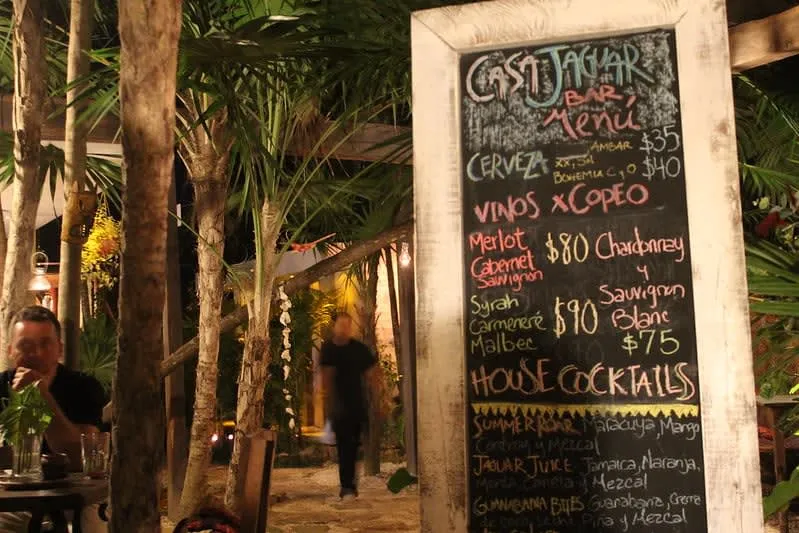 CASA JAGUAR
BAR
Menú
CERVEZA AMBAR $35
XX, SOL
BOHEMIA C y O $40
VINOS X COPEO
Merlot
Cabernet
Sauvignon $80
Chardonnay
y
Sauvignon
Blanc
$75
Syrah
Carmeneré
Malbec $90
HOUSE COCKTAILS
SUMMER ROAR Maracuya, Mango
y Mezcal
JAGUAR JUICE Jamaica, Naranja,
Canela y Mezcal
GUANABANA BITES Guanabana, Crema
de Piña y Mezcal